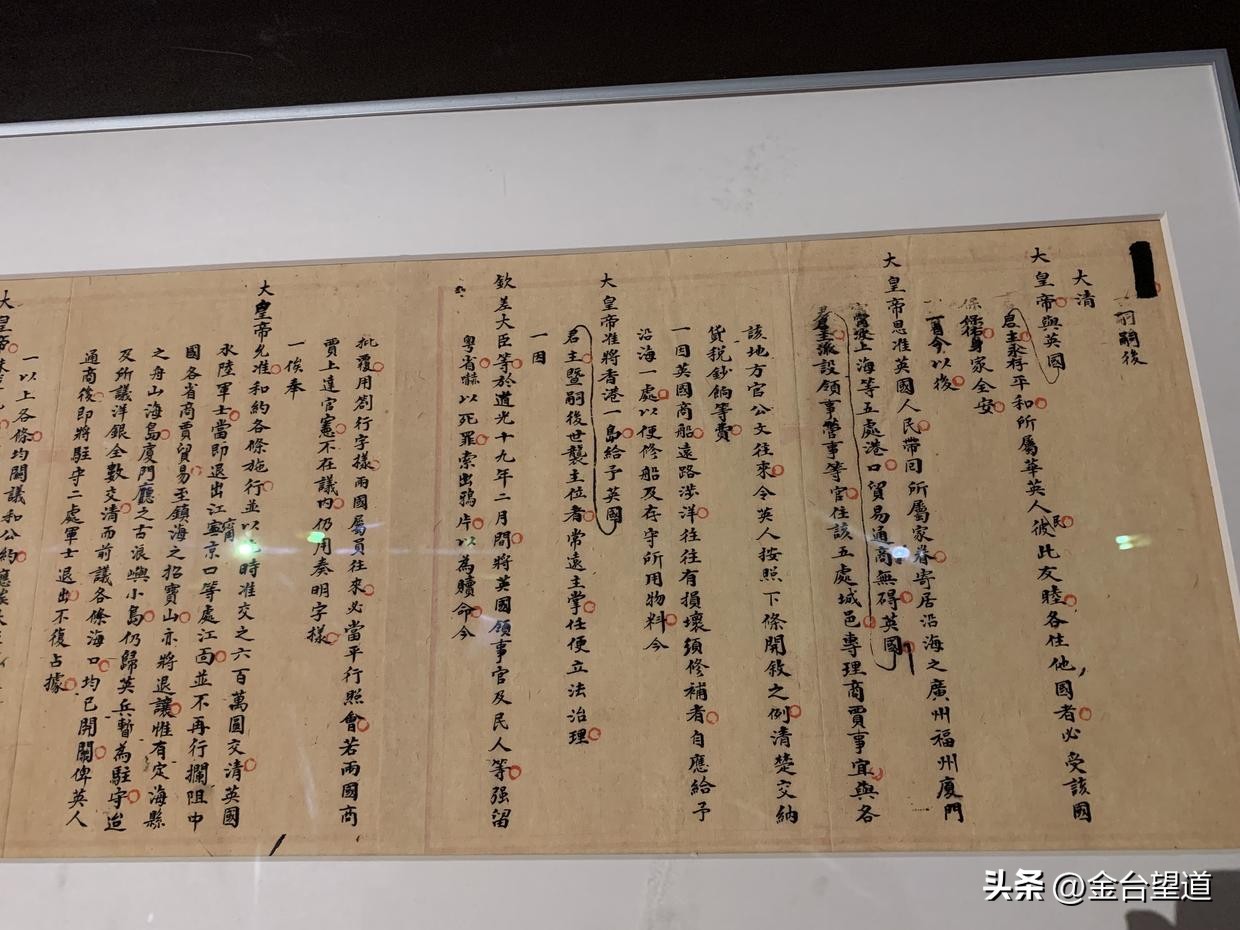 嗣後
大清
大皇帝與英國
君主永存平和所屬華英人民彼此友睦各住他國者必受該國
保佑身家全安
一自今以後
大皇帝恩准英國人民帶同所屬家眷寄居沿海之廣州福州廈門
上海等五處港口貿易通商無碍英國
君主派設領事管事等官住該五處城邑專理商賈事宜與各
該地方官公文往來令英人按照下條開敘之例清楚交納
貨稅鈔餉等費
一因英國商船遠路涉洋往往有損壞須修補者自應給予
沿海一處以便修船及存守所用物料今
大皇帝准將香港一島給予英國
君主暨嗣後世襲主位者常遠主掌任便立法治理
一因
欽差大臣等於道光十九年二月間將英國領事官及民人等强留
粵省嚇以死罪索出鴉片以為贖命今
批覆用劄行字樣兩國屬員往來必當平行照會若兩國商
賈上達官憲不在議內仍用奏明字樣
一俟奉
大皇帝允准和約各條施行並以此時准交之六百萬圓交清英國
水陸軍士當即退出江寧京口等處江面並不再行攔阻中
國各省商賈貿易至鎮海之招寶山亦將退讓惟有定海縣
之舟山海島廈門廳之古浪嶼小島仍歸英兵暫為駐守迨
及所議洋銀全數交清而前議各條海口均已開闢俾英人
通商後即將駐守二處軍士退出不復占據
一以上各條均關議和公約應
大皇帝
头条 @金台望道